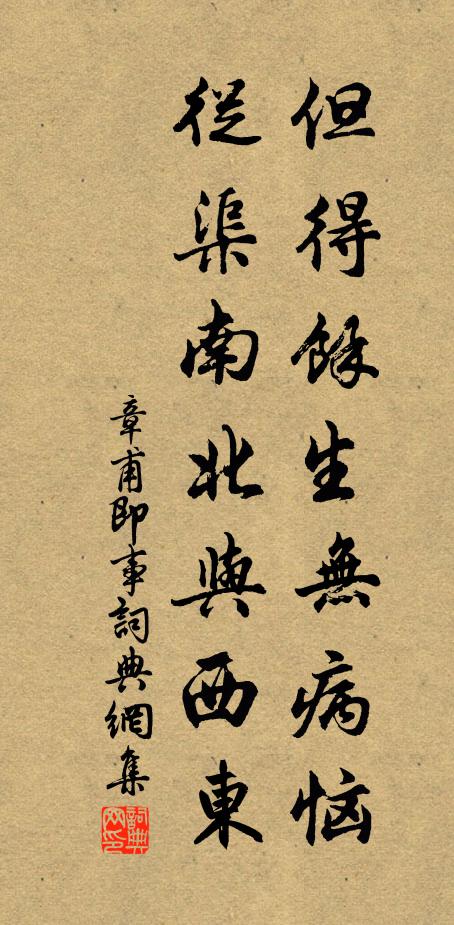 但得餘生無病惱
從渠南北與西東
章甫即事詞典網集
詞典網印